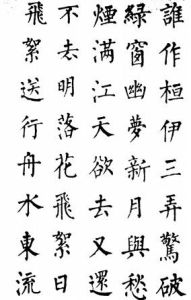 誰作桓伊三弄驚破
綠窗幽夢新月與愁
煙滿江天欲去又還
不去明落花飛絮日
飛絮送行舟水東流